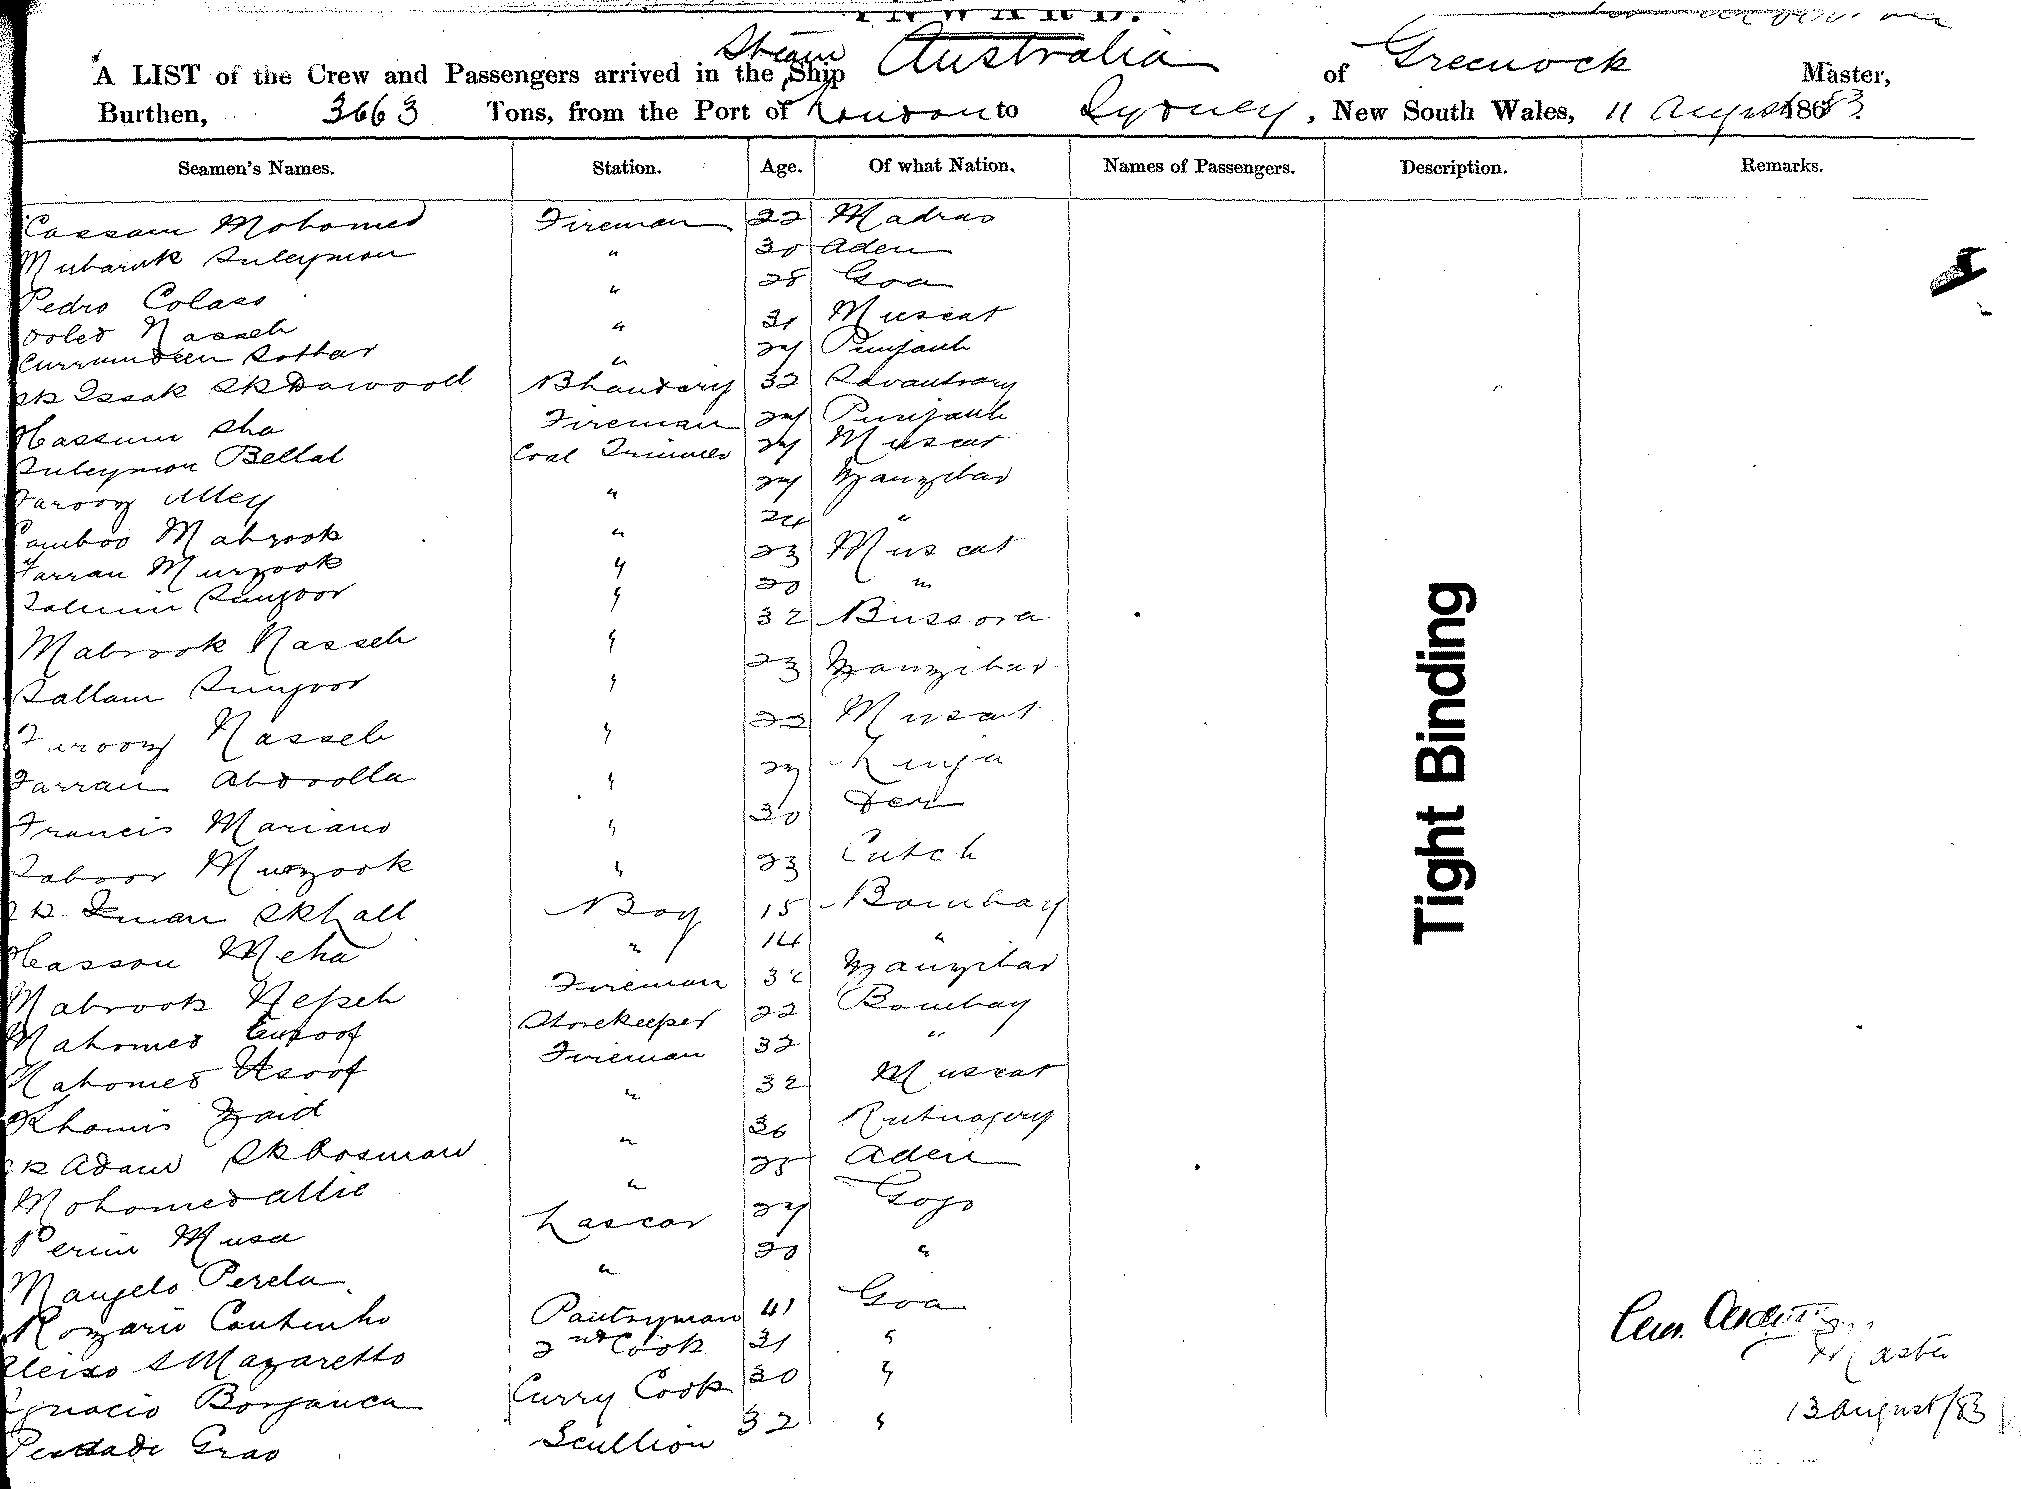 INWARD.
A LIST of the Crew and Passengers arrived in the Steam Ship Australia of Greenock Master,
Burthen, 3663 Tons, from the Port of London to Sydney, New South Wales, 11 August 1883
Seamen's Names. Station. Age. Of what Nation. Names of Passengers. Description. Remarks.
Cassam Mohomed Fireman 22 Madras
Mubaruk Suleymon " 30 Aden
Pedro Colaso " 28 Goa
Nasseb " 31 Muscat
Curramdeen Sottar " 24 Punjaub
Sk Issak Sk Dawood Bhandary 32
Hassum Sha Fireman 24 Punjaub
Suleymon Bellal Coal Trimmer 24 Muscat
Farooz Alley " 24 Zanzibar
Mabrook " 24 "
Farran Murzook " 23 Muscat
Sunzoor " 20 "
Mabrook Nasseb " 32 Bussora
Sallam Sunzoor " 23 Zanzibar
Firooz Nasseb " 22 Muscat
Farran Abdoolla " 24 Linja
Francis Mariano " 30
Taboor Murzook " 23 Cutch
Sk Iman Sk Lall Boy 15 Bombay
Hasson Meha " 14 "
Mabrook Nepseb Fireman 32 Zanzibar
Mahomed Storekeeper 22 Bombay
Mahomed Usoof Fireman 32 "
Khamis Zaid " 32 Muscat
Sk Adam Sk Oosman " 36 Rutnagery
Mohomed Allie " 25 Aden
Perim Musa Lascar 24 Gogo
Mangelo Perela " 20 "
Rozario Coutinho Pantryman 41 Goa
Aleixo Mazaretto 2nd Cook 31 "
Ignacio Borjanca Curry Cook 30 "
Grao Scullion 32 "
Tight Binding
Master
13 August/83